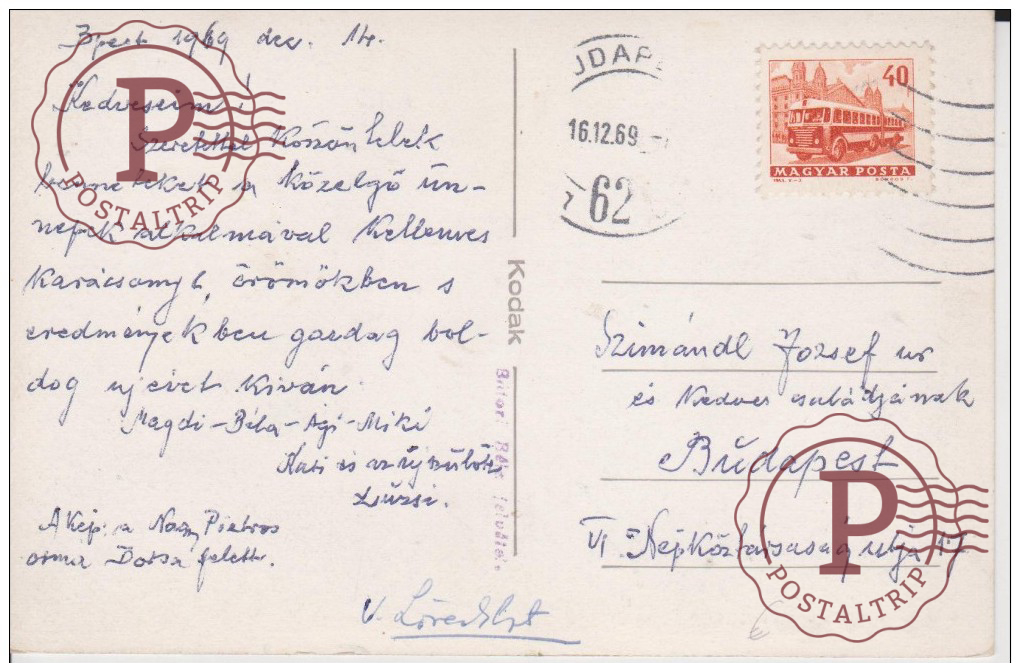 Bpest 1969 dec. 14.
Kedveseim!
Szeretettel Köszöntelek
a közelgő ün-
nepek alkalmával Kellemes
Karácsonyt, örömökben s
eredményekben gazdag bol-
dog ujévet Kiván
Magdi - Béla - Ági - Miki
Kati és az újszülött
Zsuzsi.
A kép: a Nagy Pietros
orma Borsa felett.
Kodak
felvétel.
UDAP
16.12.69
62
40
MAGYAR POSTA
Szimándl József ur
és Kedves családjának
Budapest
VI Népköztársaság utja 17
P
POSTALTRIP
P
POSTALTRIP